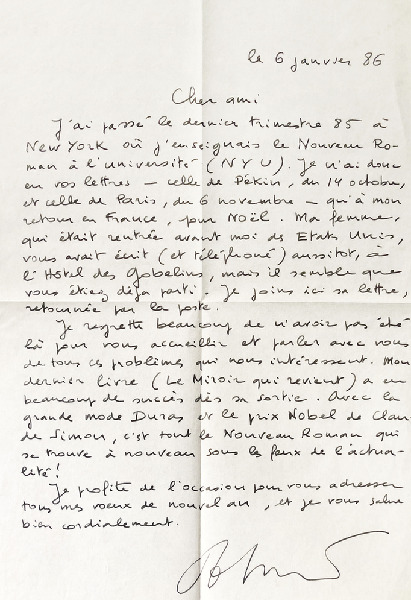 le 6 janvier 86
Cher ami
J'ai passé le dernier trimestre 85 à
New York où j'enseignais le Nouveau Ro-
man à l'université (NYU). Je n'ai donc
eu vos lettres – celle de Pékin, du 14 octobre,
et celle de Paris, du 6 novembre – qu'à mon
retour en France, pour Noël. Ma femme,
qui était rentrée avant moi des Etats Unis,
vous avait écrit (et téléphoné) aussitôt, à
l'Hôtel des Gobelins, mais il semble que
vous étiez déjà parti. Je joins ici sa lettre,
retournée par la poste.
Je regrette beaucoup de n'avoir pas été
là pour vous accueillir et parler avec vous
de tous ces problèmes qui nous intéressent. Mon
dernier livre (Le Miroir qui revient) a eu
beaucoup de succès dès sa sortie. Avec la
grande mode Duras et le prix Nobel de Clau-
de Simon, c'est tout le Nouveau Roman qui
se trouve à nouveau sous les feux de l'actua-
lité!
Je profite de l'occasion pour vous adresser
tous mes voeux de nouvel an, et je vous salue
bien cordialement.